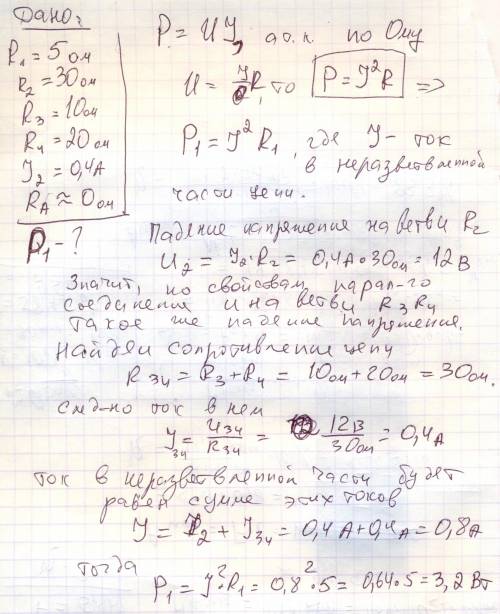 Дано:
R₁ = 5 ом
R₂ = 30 ом
R₃ = 10 ом
R₄ = 20 ом
J₂ = 0,4 А
R_A ≈ 0 ом
P₁ - ?
P = UJ, а т.к. по Ому
U = JR, то P = J²R =>
P₁ = J²R₁, где J - ток
в неразветвленной
части цепи.
Падение напряжения на ветви R₂
U₂ = J₂·R₂ = 0,4А·30ом = 12 В
Значит, по свойствам парал-го
соединения и на ветви R₃R₄
такое же падение напряжения.
Найдём сопротивление цепи
R₃₄ = R₃ + R₄ = 10ом + 20ом = 30 ом.
след-но ток в ней
J₃₄ = U₃₄/R₃₄ = 12В/30ом = 0,4А
ток в неразветвленной части будет
равен сумме этих токов
J = J₂ + J₃₄ = 0,4 А + 0,4А = 0,8А
тогда
P₁ = J²·R₁ = 0,8²·5 = 0,64·5 = 3,2 Вт